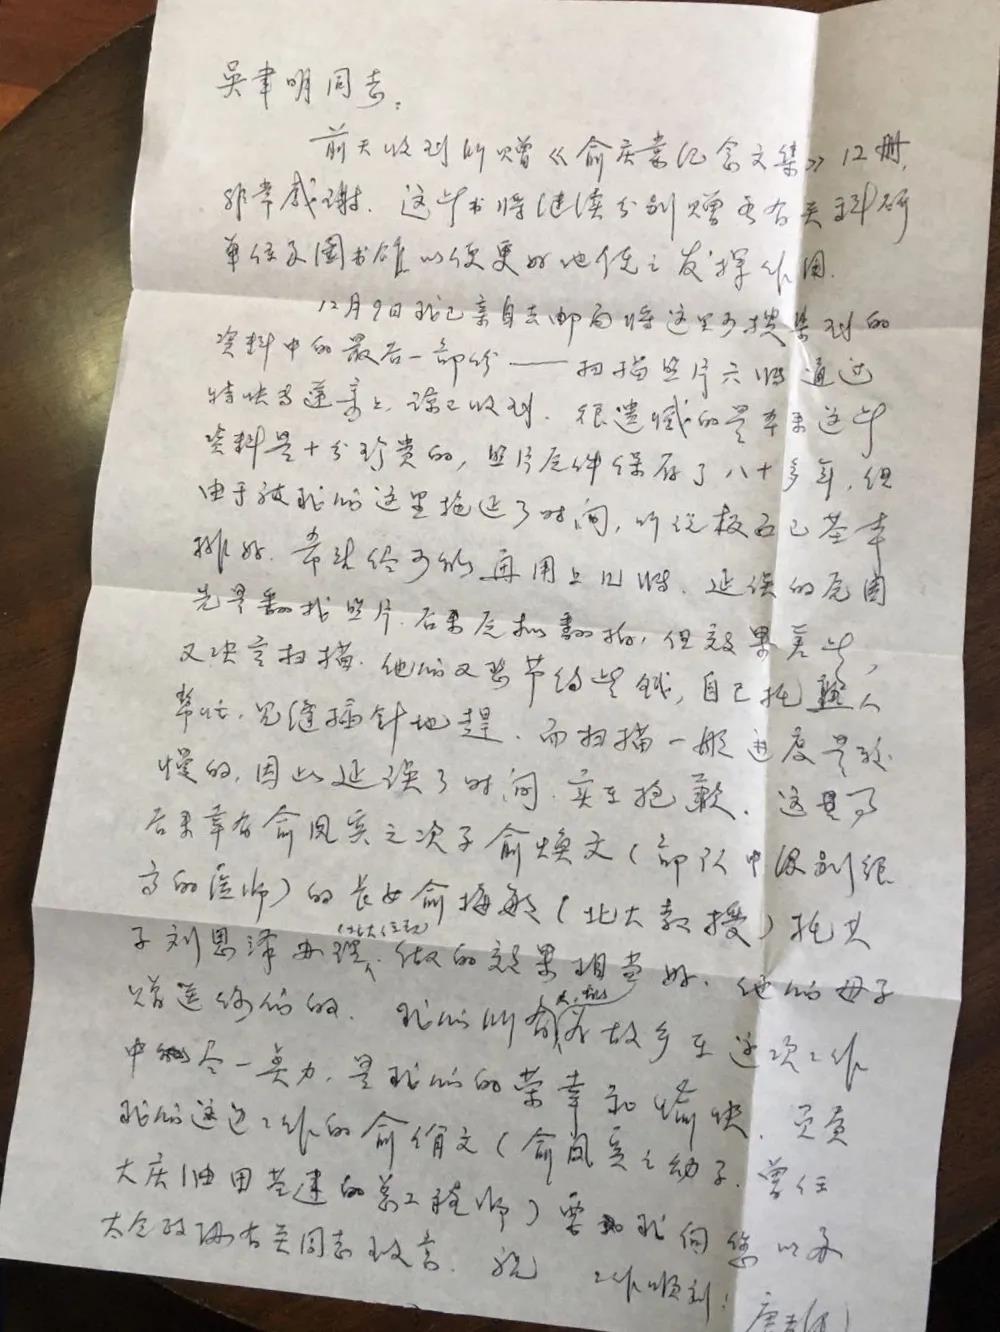 吴聿明同志:
前天收到所赠《俞庆棠纪念文集》12册,
非常感谢. 这些书将继续分别赠予有关科研
单位及图书馆以便更好地使之发挥作用.
12月9日我已亲自去邮局将这里可搜集到的
资料中的最后一部份——扫描照片六帧通过
特快专递寄上, 谅已收到. 很遗憾的是本来这些
资料是十分珍贵的, 照片原件保存了八十多年, 但
由于被我们这里拖延了时间, 听说板面已基本
排好. 希望尽可能再用上几帧. 延误的原因
先是翻找照片. 后来是拍翻拍, 但效果差些,
又决定扫描. 他们又要节约些钱, 自己托熟人
帮忙, 见缝插针地赶. 而扫描一般进度是较
慢的, 因此延误了时间. 实在抱歉. 这是了
后来幸有俞凤宾之次子俞焕文(部队中级别很
高的医师)的长女俞梅敏(北大教授)托其
子刘思泽办理(北大任职). 做的效果相当好. 他们母子
赠送给你们的. 我们所有 为故乡在这项工作
中尽一臭力, 是我们的荣幸和愉快. 负责
我们这边工作的俞俏文(俞凤宾之幼子. 曾任
大庆油田基建的总工程师)要我向您以及
太仓政协有关同志致意. 祝 工作顺利!